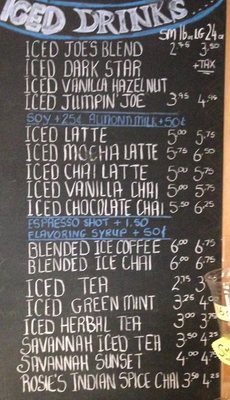 ICED DRINKS
SM 16oz LG 24oz
ICED JOE'S BLEND 2.75 3.50
ICED DARK STAR +TAX
ICED VANILLA HAZELNUT
ICED JUMPIN' JOE 3.95
SOY +25¢ ALMOND MILK +50¢
ICED LATTE 5.00 5.75
ICED MOCHA LATTE 5.75 6.50
ICED CHAI LATTE 5.00 5.75
ICED VANILLA CHAI 5.00 5.75
ICED CHOCOLATE CHAI 5.50 6.25
ESPRESSO SHOT + 1.50
FLAVORING SYRUP + 50¢
BLENDED ICE COFFEE 6.00 6.75
BLENDED ICE CHAI 6.00 6.75
ICED TEA 2.75
ICED GREEN MINT 3.25
ICED HERBAL TEA 3.00
SAVANNAH ICED TEA 3.50 4.25
SAVANNAH SUNSET 4.00 4.75
ROSIE'S INDIAN SPICE CHAI 3.50 4.25